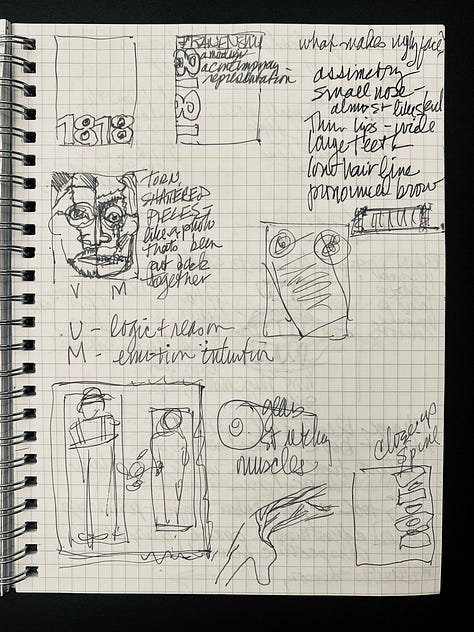 1818
FRANKENSTEIN
a modern
a contemporary
representation
1818
what makes ugly face?
assimetry
small nose -
almost like skull
Thin lips - wide
large teeth
low hair line
pronounced brow
TORN
SHATTERED
PIECES
like a photo
thats been
put back
together
V M
V - logic + reason
M - emotion intuition
gears
stretchy
muscles
close up
spine